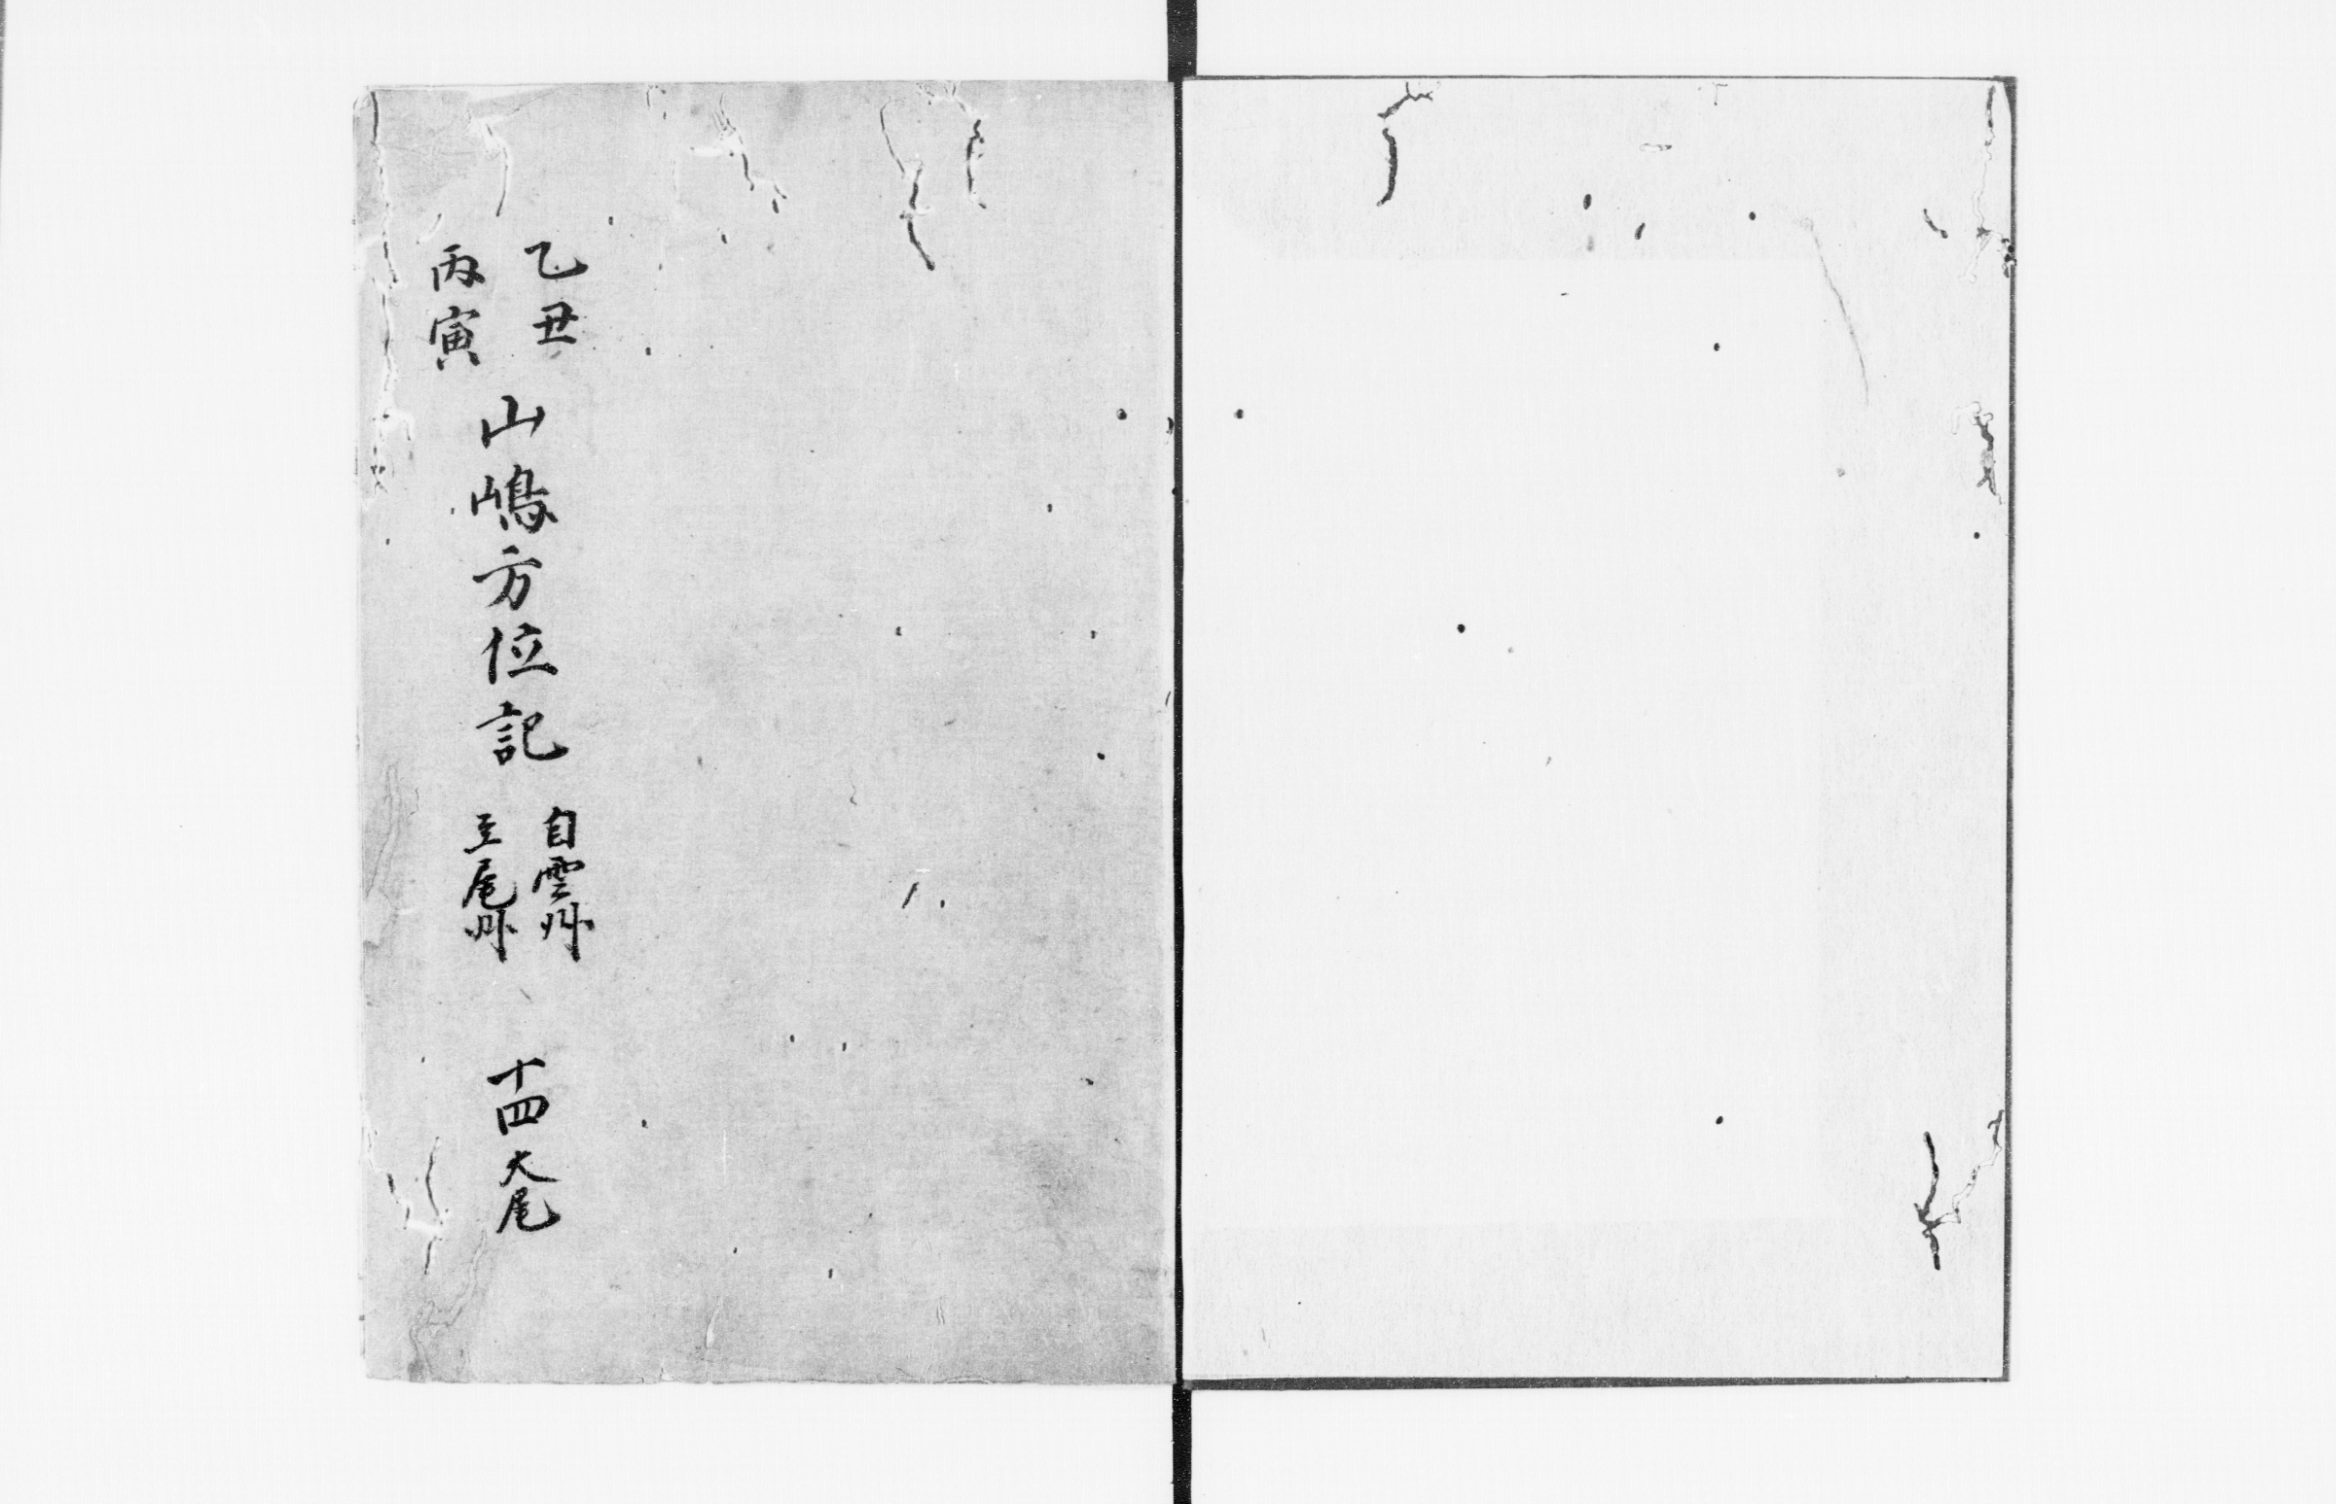 乙丑
丙寅
山嶋方位記
自雲州
至尾州
十四大尾